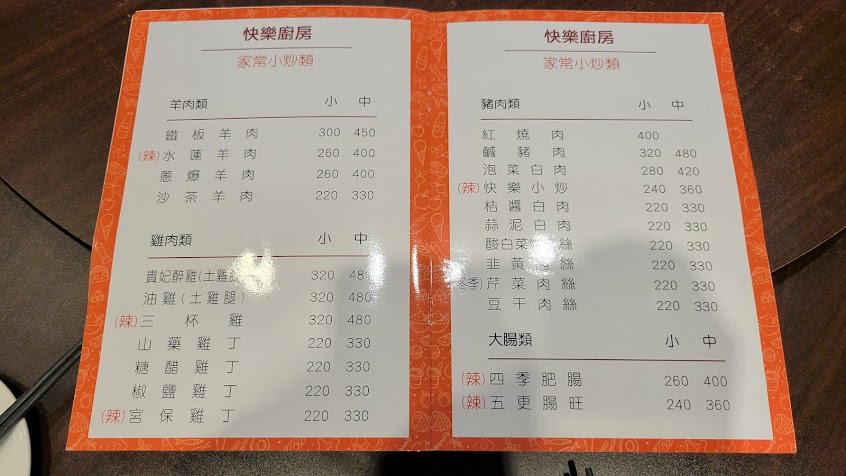 快樂廚房
家常小炒類
羊肉類 小 中
鐵板羊肉 300 450
(辣)水蓮羊肉 260 400
蔥爆羊肉 260 400
沙茶羊肉 220 330
雞肉類 小 中
貴妃醉雞(土雞 320 48
油雞(土雞腿) 320 480
(辣)三杯雞 320 480
山藥雞丁 220 330
糖醋雞丁 220 330
椒鹽雞丁 220 330
(辣)宮保雞丁 220 330
快樂廚房
家常小炒類
豬肉類 小 中
紅燒肉 400
鹹豬肉 320 480
泡菜白肉 280 420
(辣)快樂小炒 240 360
桔醬白肉 220 330
蒜泥白肉 220 330
酸白菜 絲 220 330
韭黃 絲 220 330
冬季)芹菜肉絲 220 330
豆干肉絲 220 330
大腸類 小 中
(辣)四季肥腸 260 400
(辣)五更腸旺 240 360